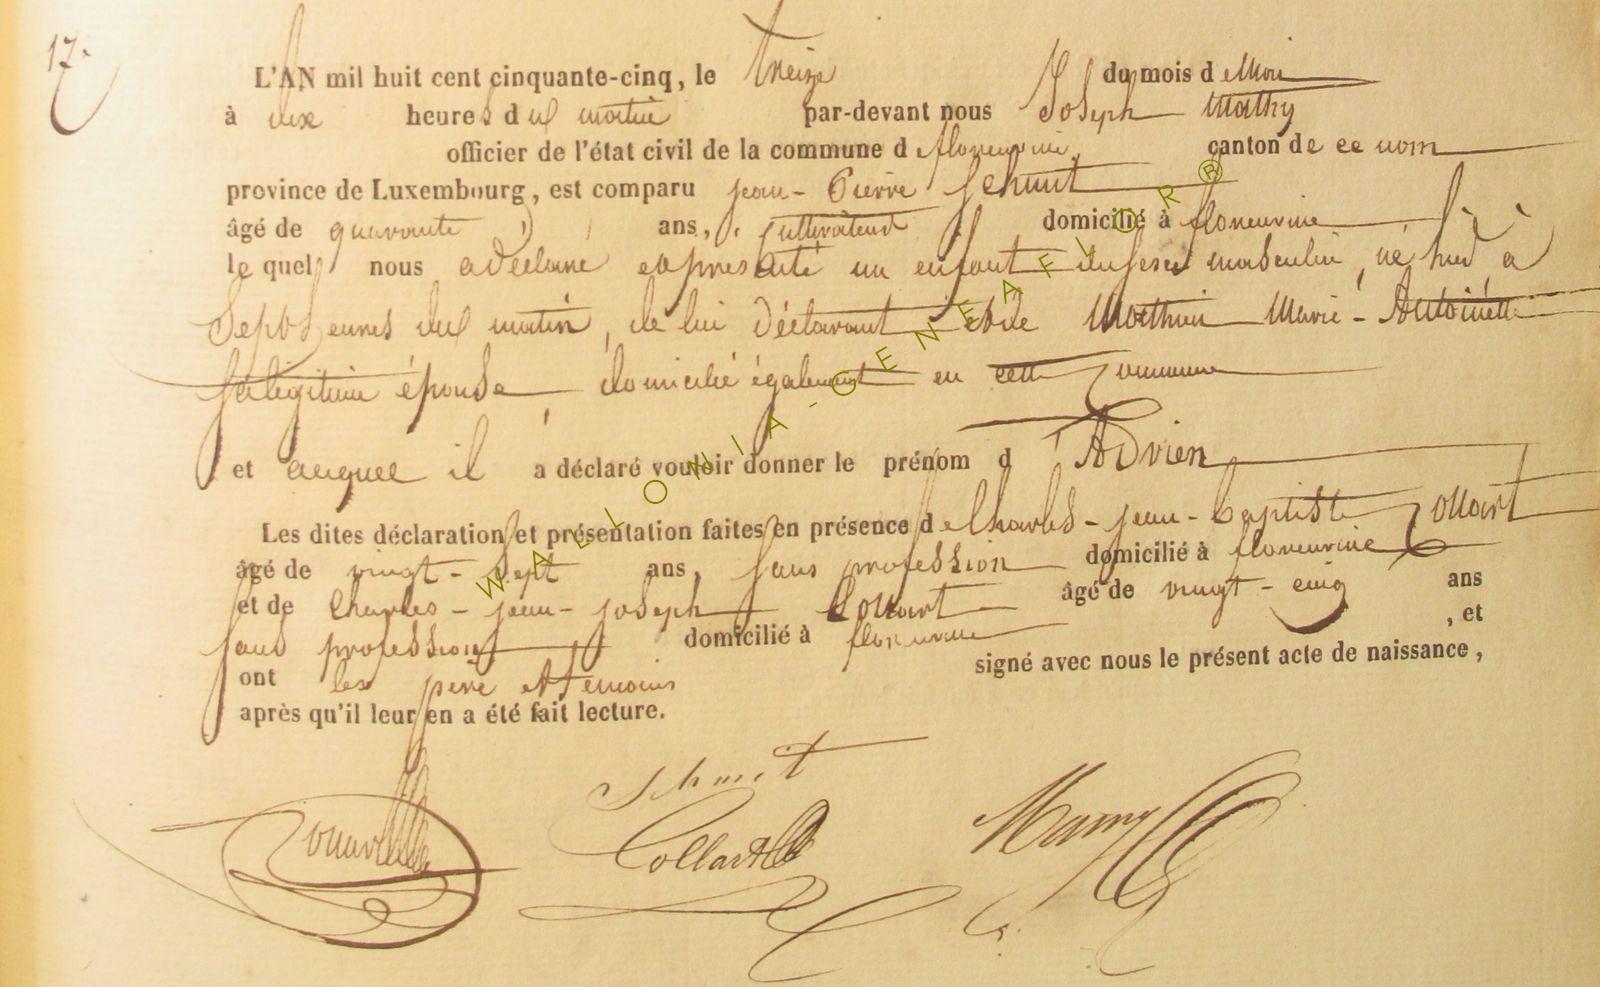 17.
L'AN mil huit cent cinquante-cinq, le treize du mois de Mai
à dix heures du matin par-devant nous Joseph Mathy
officier de l'état civil de la commune de florenville, canton de ce nom
province de Luxembourg, est comparu jean-Pierre Schmit
âgé de quarante ans, cultivateur domicilié à florenville
lequel nous a déclaré et présenté un enfant du sexe masculin, né hier à
Sept heures du matin, de lui déclarant et de Mathieu Marie-Antoinette
sa légitime épouse, domicilié également en cette Commune
et auquel il a déclaré vouloir donner le prénom d'Adrien
Les dites déclaration et présentation faites en présence de Charles-jean-baptiste Collart
âgé de vingt-sept ans, sans profession domicilié à florenville
et de Charles-jean-joseph Collart âgé de vingt-cinq ans
sans profession domicilié à florenville, et
ont les père et témoins signé avec nous le présent acte de naissance,
après qu'il leur en a été fait lecture.
Schmit
Collart
WALLONIA-GENEAFLOR®